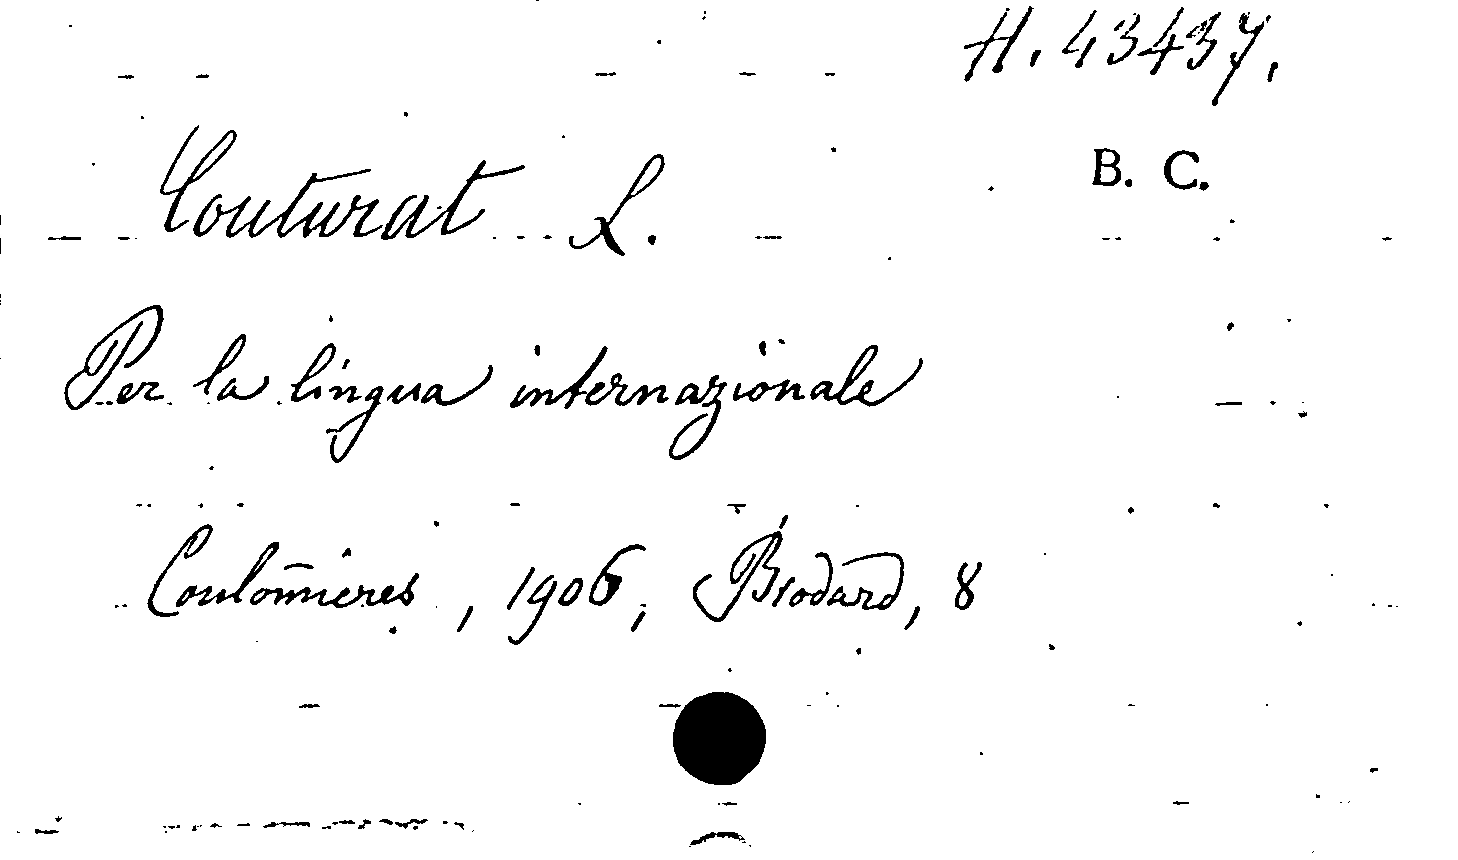 H. 43437.
B. C.
Couturat L.
Per la lingua internazionale
Coulom̄ieres, 1906, Brodard, 8